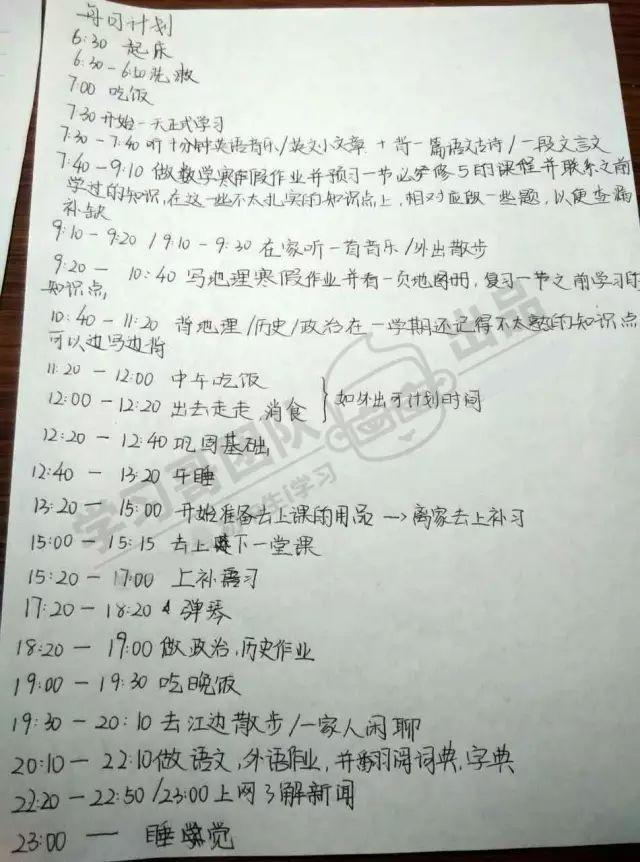 每日计划
6:30 起床
6:30-6:50洗漱
7:00 吃饭
7:30 开始一天正式学习
7:30-7:40 听十分钟英语音乐/英文小文章 + 背一篇语文古诗/一段文言文
7:40-9:10 做数学寒假作业并预习一节必修5的课程并联系之前
学过的知识,在这一些不太扎实的知识点上,相对应做一些题,以便查漏
补缺
9:10-9:20 /9:10-9:30 在家听一首音乐/外出散步
9:20- 10:40 写地理寒假作业并看一页地图册,复习一节之前学习的
知识点,
10:40-11:20 背地理/历史/政治在一学期还记得不太熟的知识点
可以边写边背
11:20-12:00 中午吃饭
12:00-12:20 出去走走,消食
如外出可计划时间
12:20-12:40 巩固基础
12:40-13:20 午睡
13:20-15:00 开始准备去上课的用品→离家去上补习
15:00-15:15 去上下一堂课
15:20-17:00 上补习
17:20-18:20 弹琴
18:20-19:00 做政治,历史作业
19:00-19:30 吃晚饭
19:30-20:10 去江边散步/一家人闲聊
20:10-22:10做语文,外语作业,并翻阅词典,字典
22:20-22:50/23:00上网了解新闻
23:00— 睡觉
学习哥团队
出品
学习